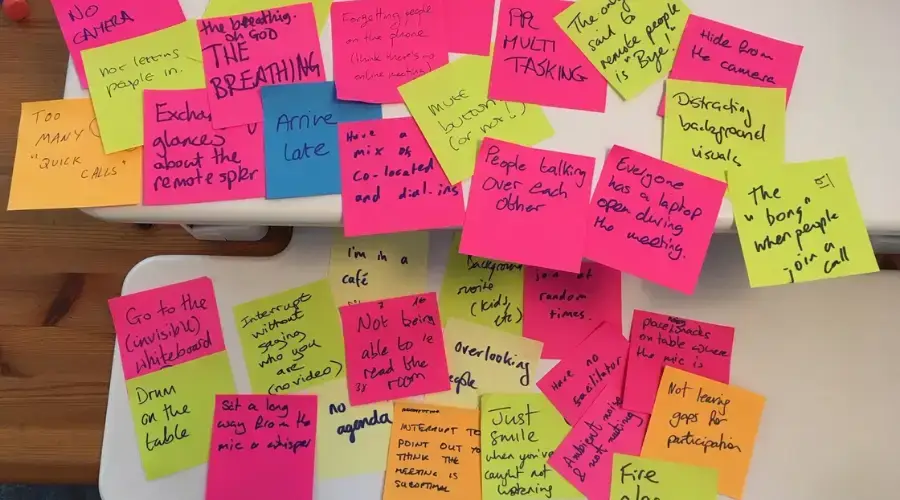 NO
CAMERA
not letting
people in.
the breathing.
oh GOD
THE
BREATHING
Forgetting people
on the phone
(think there's no
online meeting)
PPL
MULTI
TASKING
The only
said to
remote people
is "Bye!"
Hide from
the camera
TOO
MANY
"QUICK
CALLS"
glances
about the
remote spkr
Arrive
Late
Have a
mix of
co-located
and dial-ins
MUTE
button
(or not!)
People talking
over each
other
Everyone
has a laptop
open during
the meeting.
Distracting
background
visuals
The
"bong"
when people
join a
call
Go to the
(invisible)
whiteboard
Drum
on the
table
Interrupt
without
saying
who you
are
(no video)
I'm in a
café
Not being
able to
read the
room
Background
noise
(kids,
etc)
join at
random
times.
overlooking
people
Have no
facilitator
snacks
on table where
the mic is
Sit a long
way from the
mic or whisper
no
agenda
INTERRUPT TO
POINT OUT YOU
THINK THE
MEETING IS
SUBOPTIMAL
Just
smile
when you've
caught not
listening
Ambient noise
& not muting
Not leaving
gaps for
participation
Fire